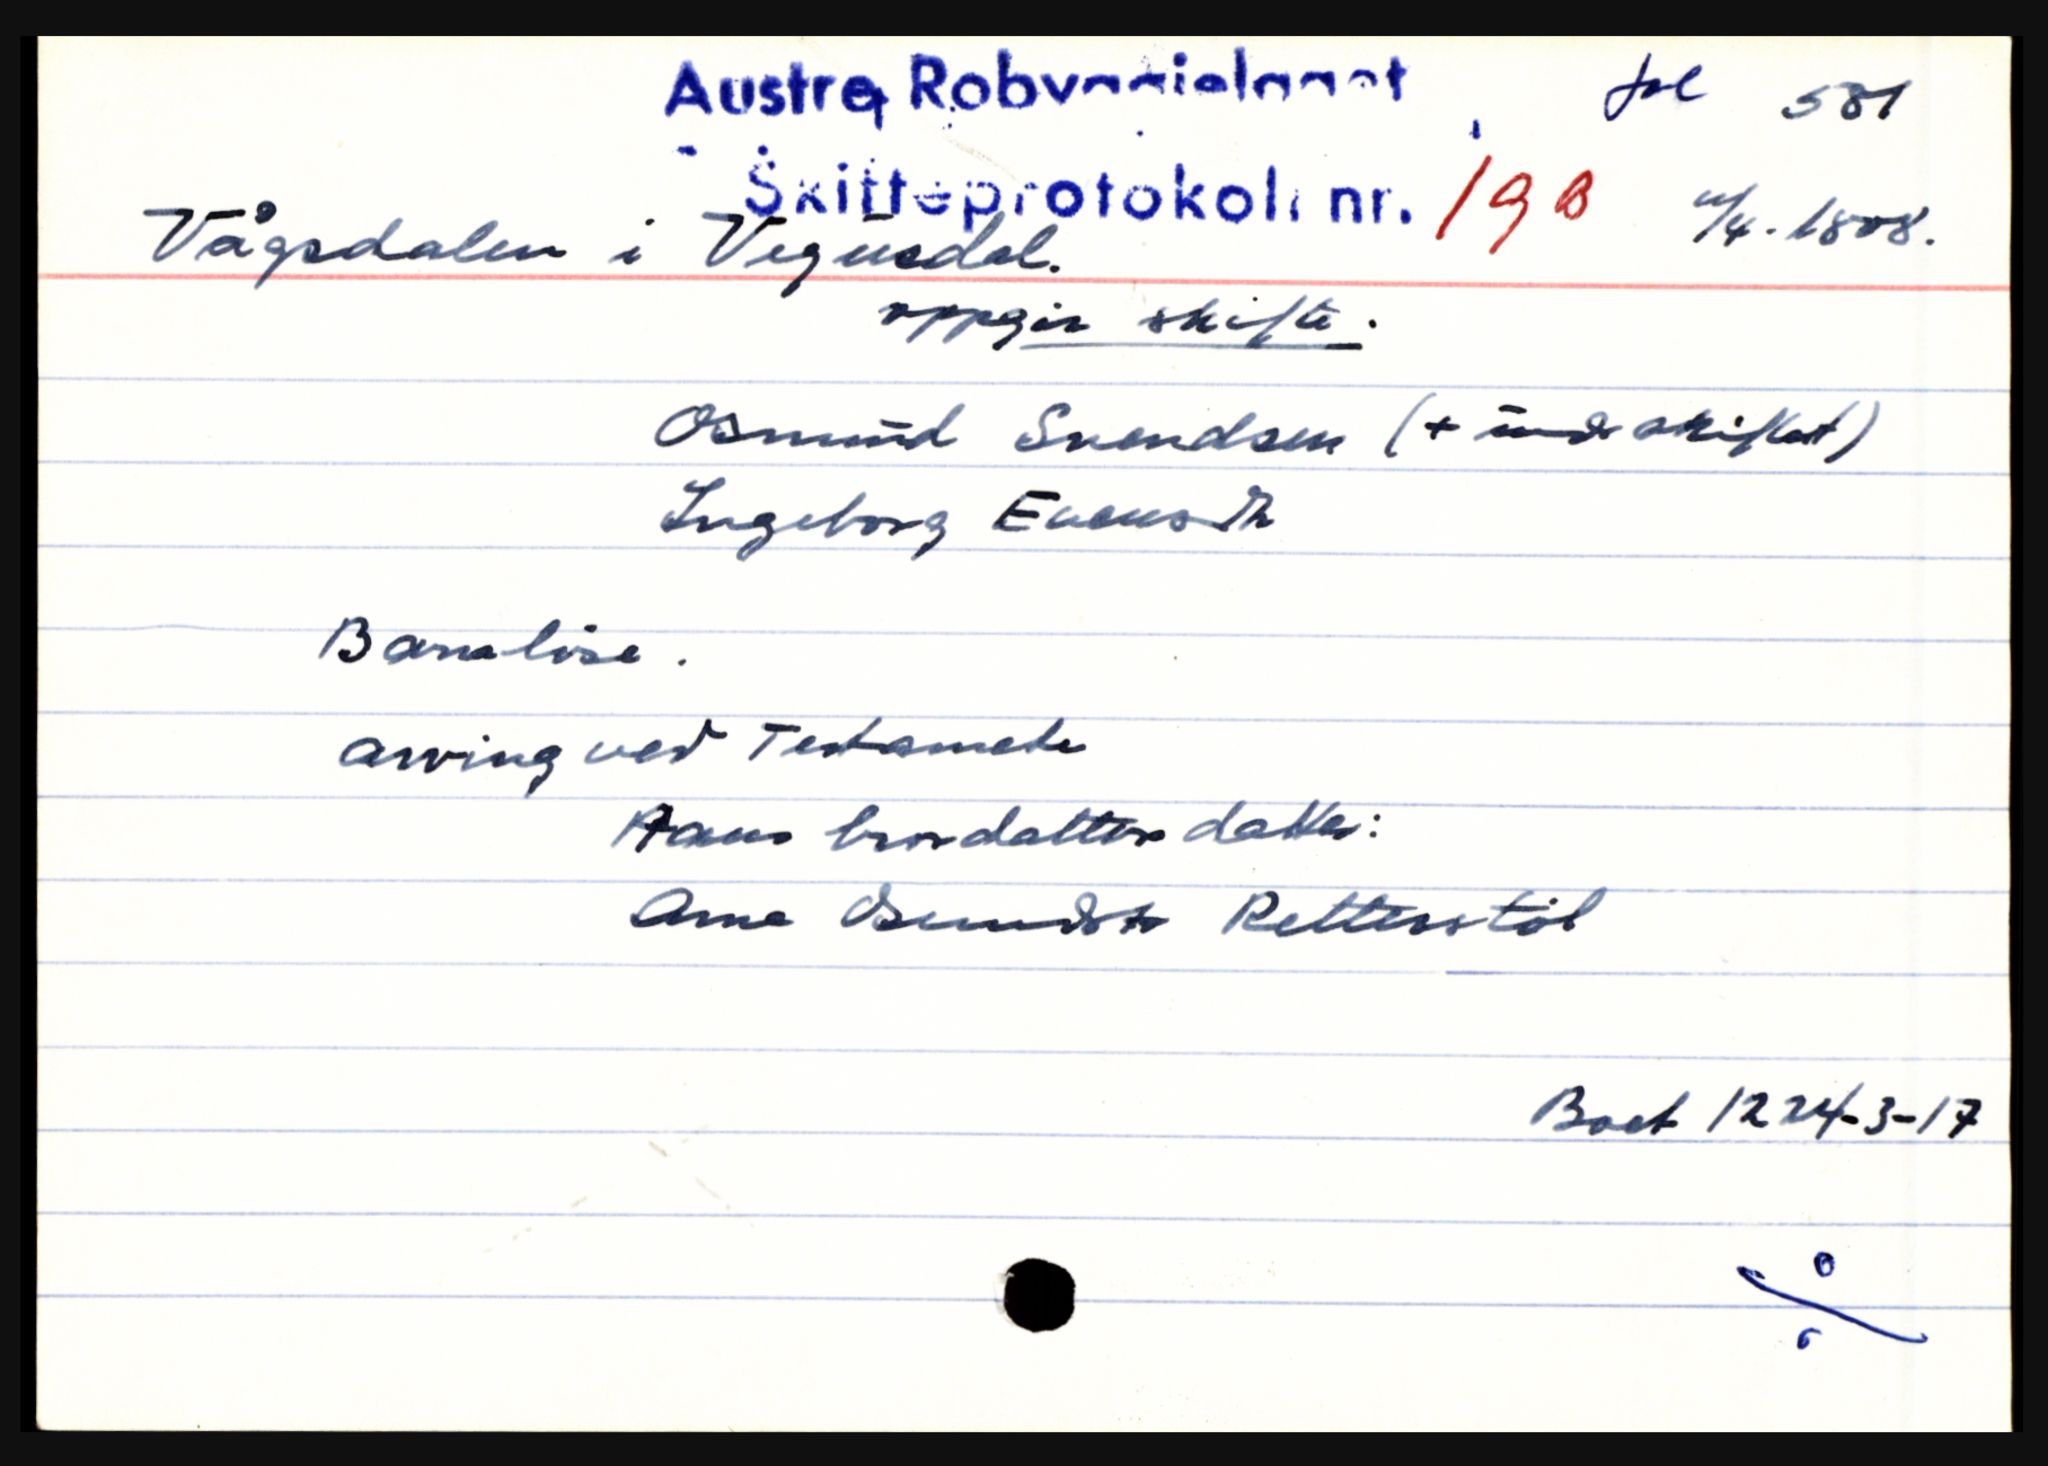 Austre Robyggjelaget fol 581
Skifteprotokoll nr. 19B 11/4. 1808.
Vågsdalen i Vegusdal.
oppgir skifte.
Osmund Svendsen (+ under skiftet)
Ingeborg Evensdtr
Barnlöse.
arving ved Testamente
Hans brordatters datter:
Anne Osmundsdtr Retterstöl
Boet 1224-3-17
0
0